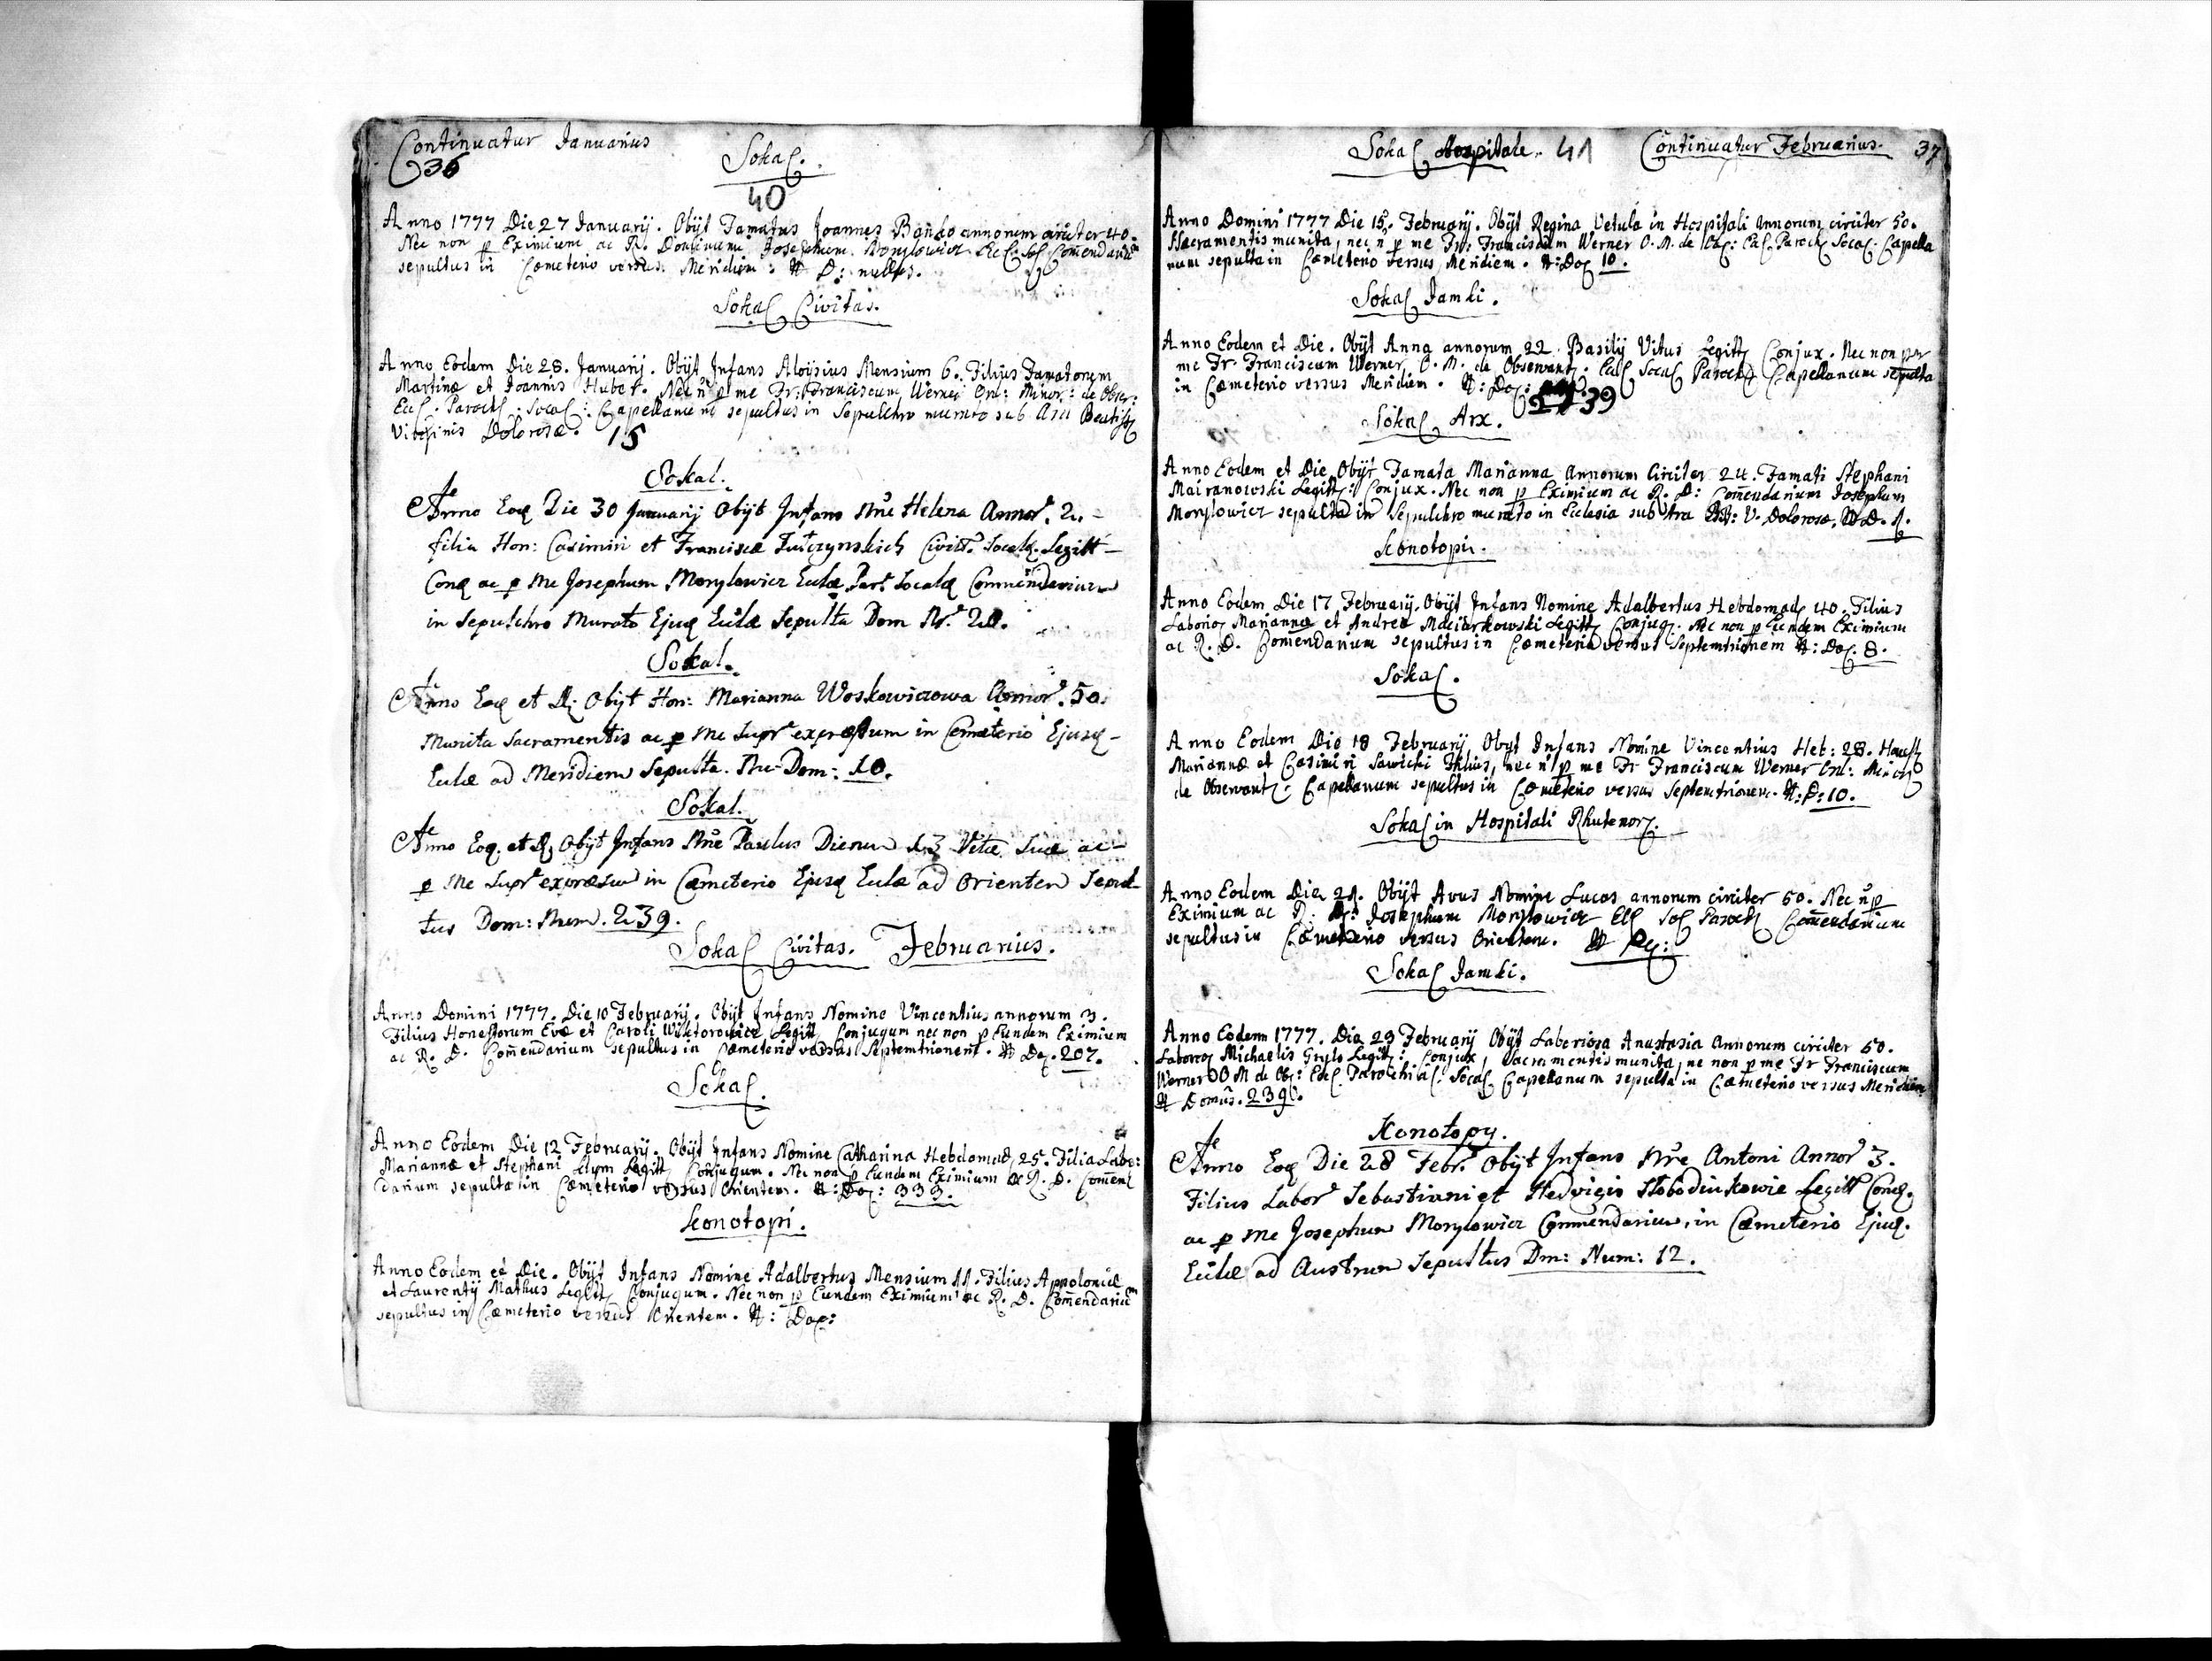 Continuatur Januarius
36
Sokal.
40
Anno 1777 Die 27 Januarij. Obijt Famatus Joannes annorum circiter 40.
Nec non p Eximium ac R. Dominum Josephum Morylowicz Eccl. Sol Comendariũ
sepultus in Cœmeterio versus Meridiem: N D: nullus.
Sokal Civitas.
Anno Eodem Die 28. Januarij. Obijt Infans Aloysius Mensium 6. Filius Famatorum
Martinæ et Joannis Hubet. Nec n p me Fr: Franciscum Werner Ord: Minor: de Obser:
Eccl. Paroch. Socal: Capellanum sepultus in Sepulchro murato sub Ara Beatiss
Virginis Dolorosæ. 15
Sokal.
Anno Eoq Die 30 Januarij Obijt Infans Nñe Helena Annor. 2. -
filia Hon: Casimiri et Franciscæ Civit. Socal. Legitt -
Conq ac p me Josephum Morylowicz Eulæ Par. Socalq Commendarium
in Sepulchro Murato Ejusq Eulæ Sepulta Dom Nr. 20.
Sokal.
Anno Eoq et D; Obijt Hon: Marianna Woskowiczowa Annor. 50.
Munita Sacramentis ac p me Supr expressum in Cemeterio Ejusq -
Eulæ ad Meridiem Sepulta. Nr Dom: 10.
Sokal.
Anno Eoq. et D; Obijt Infans Nñe Paulus Dierum 13 Vitæ Suæ ac -
p me Supr expressum in Cæmeterio Ejusq Eulæ ad Orientem Sepul-
tus Dom: Num. 239.
Sokal Civitas. Februarius.
Anno Domini 1777. Die 10 Februarij. Obijt Infans Nomine Vincentius annorum 3.
Filius Honestorum Evæ et Caroli Wiktorowicz Legitt Conjugum nec non p Eundem Eximium
ac R. D. Com̃endarium sepultus in Cœmeterio versus Septemtrionem. N Do. 207.
Sokal.
Anno Eodem Die 12 Februarij. Obijt Infans Nomine Catharina Hebdomad 25. Filia Labo:
Mariannæ et Stephani Legitt Conjugum. Nec non p Eundem Eximium ac R. D. Com̃en
darium sepulta in Cœmeterio versus Orientem. N: Do: 333.
Konotopi.
Anno Eodem et Die. Obijt Infans Nomine Adalbertus Mensium 11. Filius Appoloniæ
et Laurentij Mathus Legitt Conjugum. Nec non p Eundem Eximium ac R. D. Com̃endariũ
sepultus in Cœmeterio versus Orientem. N: Do:
Sokal Hospitale. 41 Continuatur Februarius. 37
Anno Domini 1777 Die 15. Februarij. Obijt Regina Vetula in Hospitali annorum circiter 50.
Sacramentis munita, nec n p me Fr: Franciscum Werner O. M. de Obs: Eccl. Paroch Socal: Capella
num sepulta in Cœmeterio versus Meridiem. N: Do 10.
Sokal Jamki.
Anno Eodem et Die. Obijt Anna annorum 22. Basilij Vitus Legitt Conjux. Nec non per
me Fr. Franciscum Werner. O. M. de Observant. Eccl Socal Paroch Capellanum sepulta
in Cœmeterio versus Meridiem. N: Do: 239
Sokal Arx.
Anno Eodem et Die Obijt Famata Marianna Annorum Circiter 24. Famati Stephani
Mairanowski Legitt: Conjux. Nec non p Eximium ac R. D: Com̃endarium Josephum
Morylowicz sepulta in Sepulchro murato in Ecclesia sub Ara B: V. Dolorosæ, N D. 1.
Konotopii.
Anno Eodem Die 17 Februarij. Obijt Infans Nomine Adalbertus Hebdomad 40. Filius
Laborio Mariannæ et Andreæ Maciurkowski Legitt Conjug. Nec non p Eundem Eximium
ac R. D. Comendarium sepultus in Cœmeterio versus Septemtrionem N: Do. 8.
Sokal.
Anno Eodem Die 18 Februarij Obijt Infans Nomine Vincentius Heb: 28. Honest
Mariannæ et Casimiri Sawicki Filius, nec n p me Fr Franciscum Werner Ord: Minor
de Observant. Capellanum sepultus in Cœmeterio versus Septemtrionem. N: D: 10.
Sokal in Hospitali Rhutenor.
Anno Eodem Die 21. Obijt Avus Nomine Lucas annorum circiter 60. Nec n p
Eximium ac R. D: Josephum Morylowicz Eccl Sol Paroch Com̃endarium
sepultus in Cœmeterio versus Orientem. N
Sokal Jamki.
Anno Eodem 1777. Die 23 Februarij Obijt Laboriosa Anastasia Annorum circiter 60.
Laborio Michaelis Grylo Legitt: Conjux, Sacramentis munita, ne non p me Fr Franciscum
Werner O M de Ob: Eccl Parochial: Socal Capellanum sepulta in Cœmeterio versus Meridiem
N Domûs. 239.
Konotopy.
Anno Eoq Die 28 Febr. Obijt Infans Nñe Antoni Annor 3.
Filius Labor Sebastiani et Hedvigis Slobodiukowie Legitt Conq.
ac p me Josephum Morylowicz Commendarium, in Cæmeterio Ejusq.
Eulæ ad Austrum Sepultus Dm: Num: 12.